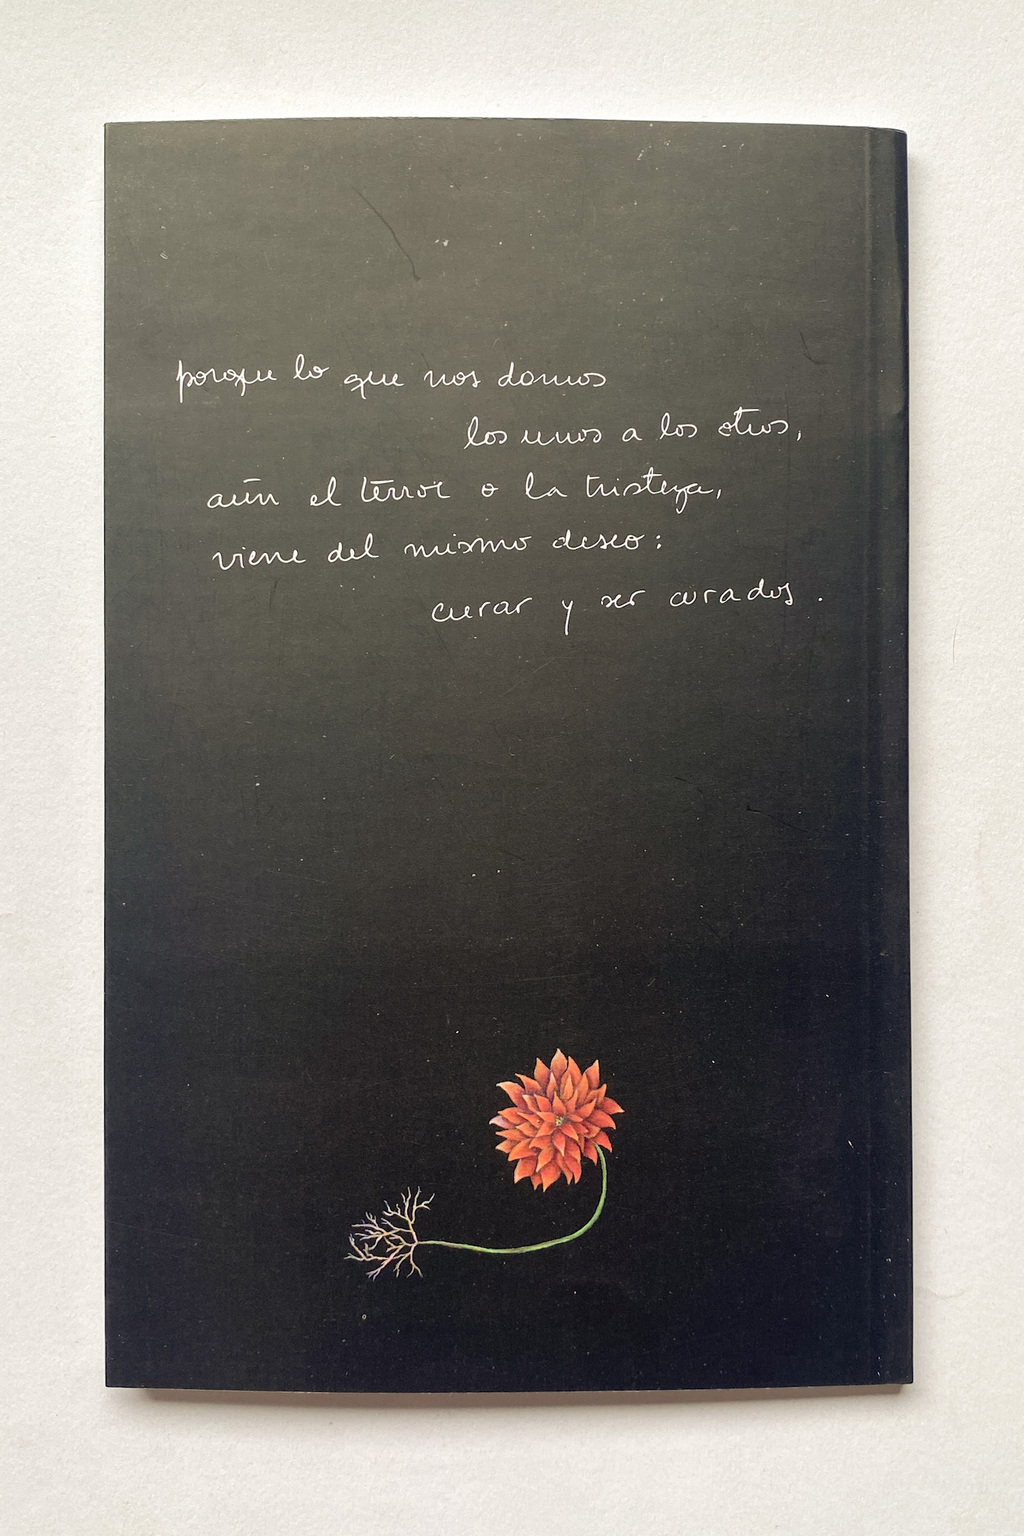 porque lo que nos damos
los unos a los otros,
aún el terror o la tristeza,
viene del mismo deseo:
curar y ser curados.